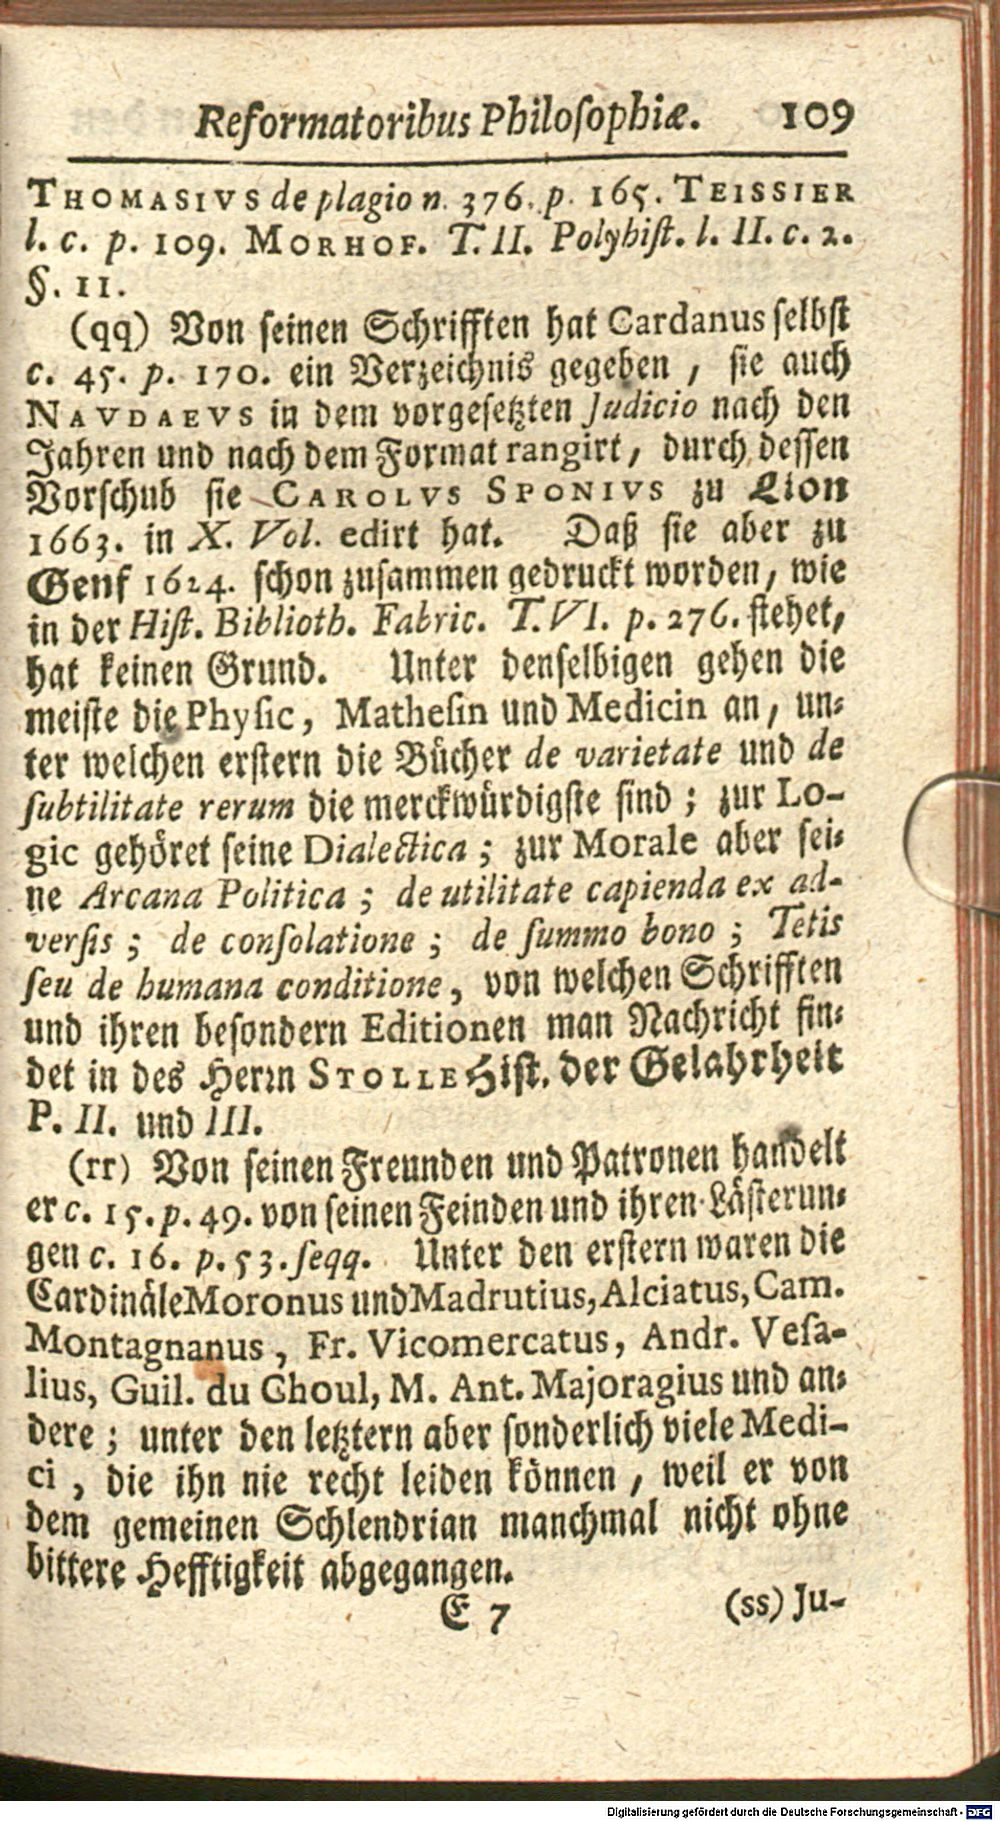 Reformatoribus Philosophiæ. 109
THOMASIVS de plagio n. 376. p. 165. TEISSIER
l. c. p. 109. MORHOF. T. II. Polyhiſt. l. II. c. 2.
§. 11.
(qq) Von ſeinen Schrifften hat Cardanus ſelbſt
c. 45. p. 170. ein Verzeichnis gegeben, ſie auch
NAVDAEVS in dem vorgeſetzten Judicio nach den
Jahren und nach dem Format rangirt, durch deſſen
Vorſchub ſie CAROLVS SPONIVS zu Lion
1663. in X. Vol. edirt hat. Daß ſie aber zu
Genf 1624. ſchon zuſammen gedruckt worden, wie
in der Hiſt. Biblioth. Fabric. T. VI. p. 276. ſtehet,
hat keinen Grund. Unter denſelbigen gehen die
meiſte die Phyſic, Matheſin und Medicin an, un-
ter welchen erſtern die Bücher de varietate und de
ſubtilitate rerum die merckwürdigſte ſind; zur Lo-
gic gehöret ſeine Dialectica; zur Morale aber ſei-
ne Arcana Politica; de utilitate capienda ex ad-
verſis; de conſolatione; de ſummo bono; Tetis
ſeu de humana conditione, von welchen Schrifften
und ihren beſondern Editionen man Nachricht fin-
det in des Herrn STOLLE Hiſt. der Gelahrheit
P. II. und III.
(rr) Von ſeinen Freunden und Patronen handelt
er c. 15. p. 49. von ſeinen Feinden und ihren Läſterun-
gen c. 16. p. 53. ſeqq. Unter den erſtern waren die
Cardinäle Moronus und Madrutius, Alciatus, Cam.
Montagnanus, Fr. Vicomercatus, Andr. Veſa-
lius, Guil. du Choul, M. Ant. Majoragius und an-
dere; unter den letztern aber ſonderlich viele Medi-
ci, die ihn nie recht leiden können, weil er von
dem gemeinen Schlendrian manchmal nicht ohne
bittere Hefftigkeit abgegangen.
E 7 (ss) Ju-
Digitalisierung gefördert durch die Deutsche Forschungsgemeinschaft - DFG